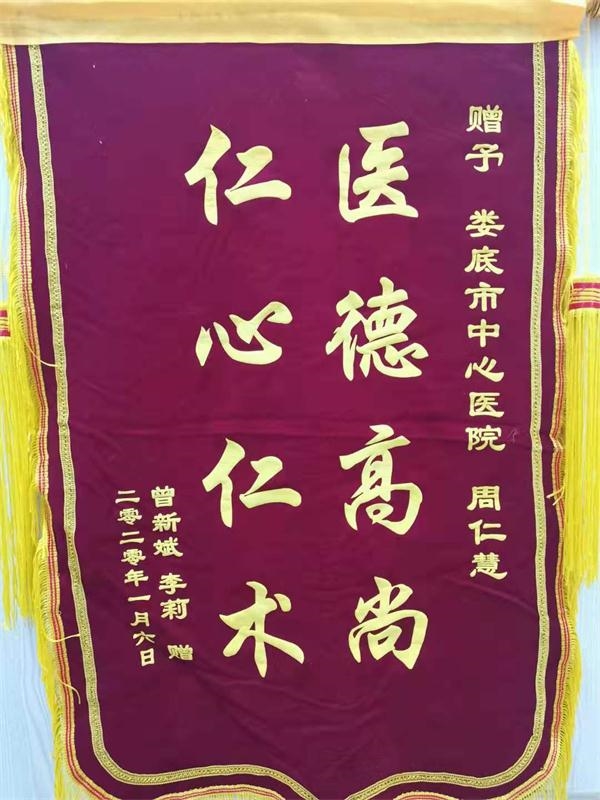 赠予 娄底市中心医院 周仁慧
医德高尚
仁心仁术
曾新斌 李莉 赠
二零二零年一月六日